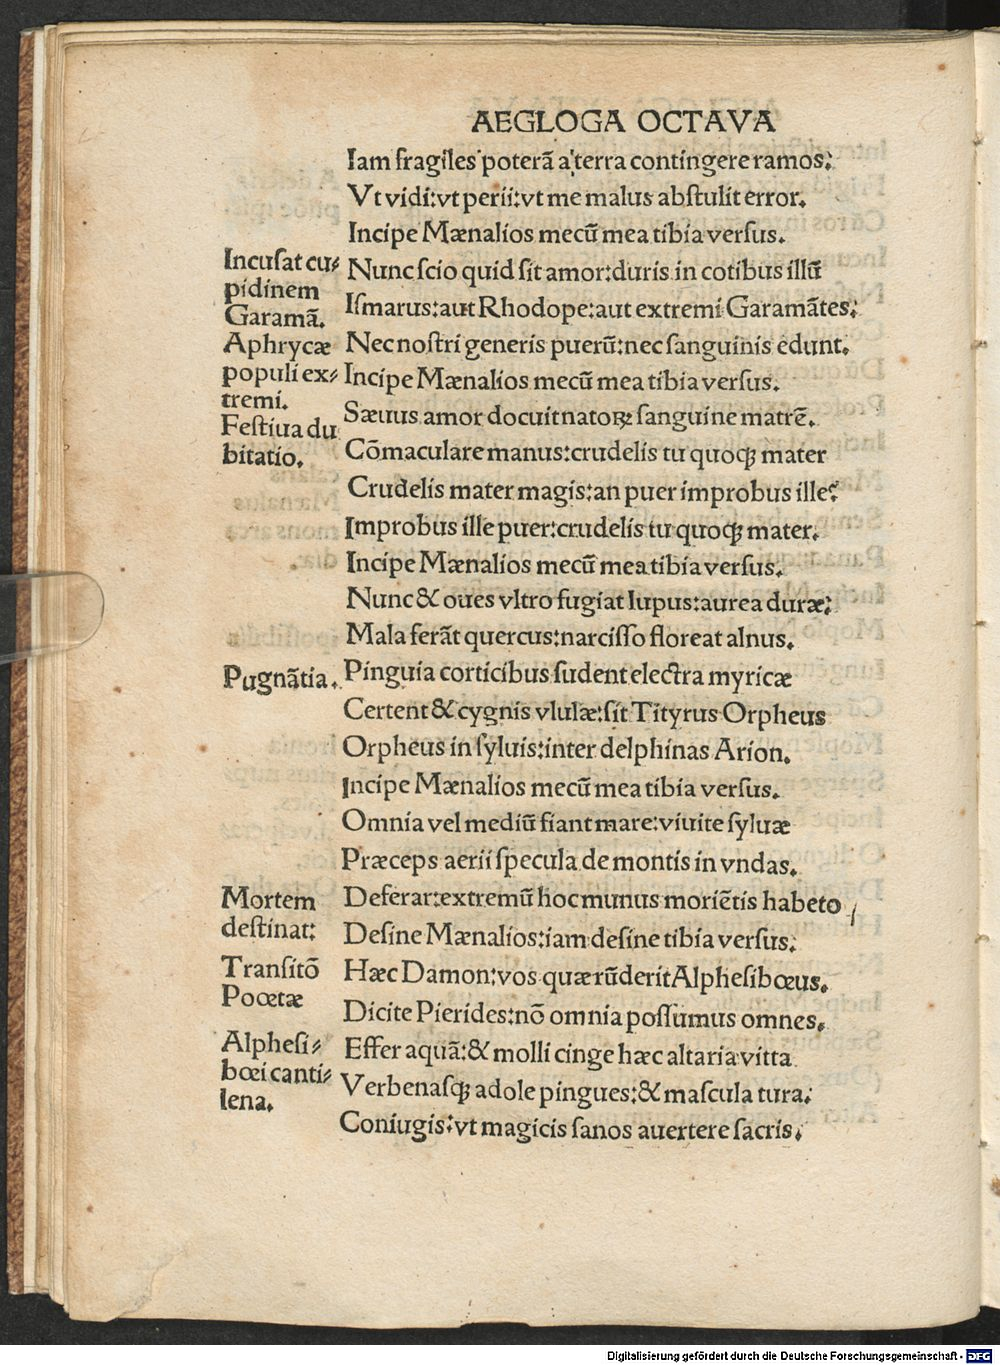 AEGLOGA OCTAVA
Iam fragiles poterã a terra contingere ramos:
Vt vidi: vt perii: vt me malus abstulit error.
Incipe Mænalios mecũ mea tibia versus.
Nunc scio quid sit amor: duris in cotibus illũ
Ismarus: aut Rhodope: aut extremi Garamãtes:
Nec nostri generis puerũ: nec sanguinis edunt.
Incipe Mænalios mecũ mea tibia versus.
Sæuus amor docuit natoꝝ sanguine matrẽ.
Cõmaculare manus: crudelis tu quoqꝫ mater
Crudelis mater magis: an puer improbus ille?
Improbus ille puer: crudelis tu quoqꝫ mater.
Incipe Mænalios mecũ mea tibia versus.
Nunc & oues vltro fugiat lupus: aurea duræ:
Mala ferãt quercus: narcisso floreat alnus.
Pinguia corticibus sudent electra myricæ
Certent & cygnis vlulæ: sit Tityrus Orpheus
Orpheus in syluis: inter delphinas Arion.
Incipe Mænalios mecũ mea tibia versus.
Omnia vel mediũ fiant mare: viuite syluæ
Præceps aerii specula de montis in vndas.
Deferar: extremũ hoc munus moriẽtis habeto
Desine Mænalios: iam desine tibia versus.
Hæc Damon: vos quæ rũderit Alphesibœus.
Dicite Pierides: nõ omnia possumus omnes.
Effer aquã: & molli cinge hæc altaria vitta
Verbenasqꝫ adole pingues: & mascula tura:
Coniugis: vt magicis sanos auertere sacris.
Incusat cu⸗
pidinem
Garamã.
Aphrycæ
populi ex⸗
tremi.
Festiua du
bitatio.
Pugnãtia.
Mortem
destinat:
Transitõ
Poœtæ
Alphesi⸗
bœi canti⸗
lena.
Digitalisierung gefördert durch die Deutsche Forschungsgemeinschaft - DFG